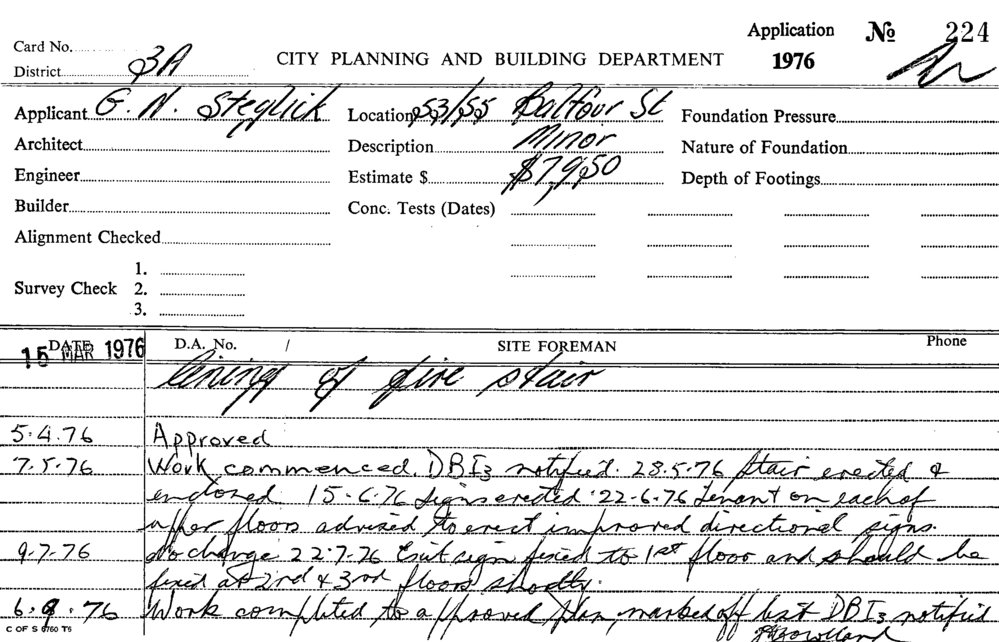 Application No 224
Card No.
District 3A
CITY PLANNING AND BUILDING DEPARTMENT
1976
Applicant G. N. Steglick
Location 53/55 Balfour St
Foundation Pressure
Architect
Description Minor
Nature of Foundation
Engineer
Estimate $ $7,950
Depth of Footings
Builder
Conc. Tests (Dates)
Alignment Checked
1.
Survey Check 2.
3.
DATE
15 MAR 1976
D.A. No. /
SITE FOREMAN
Phone
Lining of fire stair
5.4.76 Approved
7.5.76 Work commenced. DBI3 notified. 28.5.76 Stair erected &
enclosed 15-6-76 Signs erected 22-6-76 Tenant on each of
upper floors advised to erect improved directional signs.
9.7.76 No change 22.7.76 Exit sign fixed to 1st floor and should be
fixed at 2nd & 3rd floors shortly.
6.9.76 Work completed to approved plan, marked off list DBI3 notified
C OF S 6760 T6